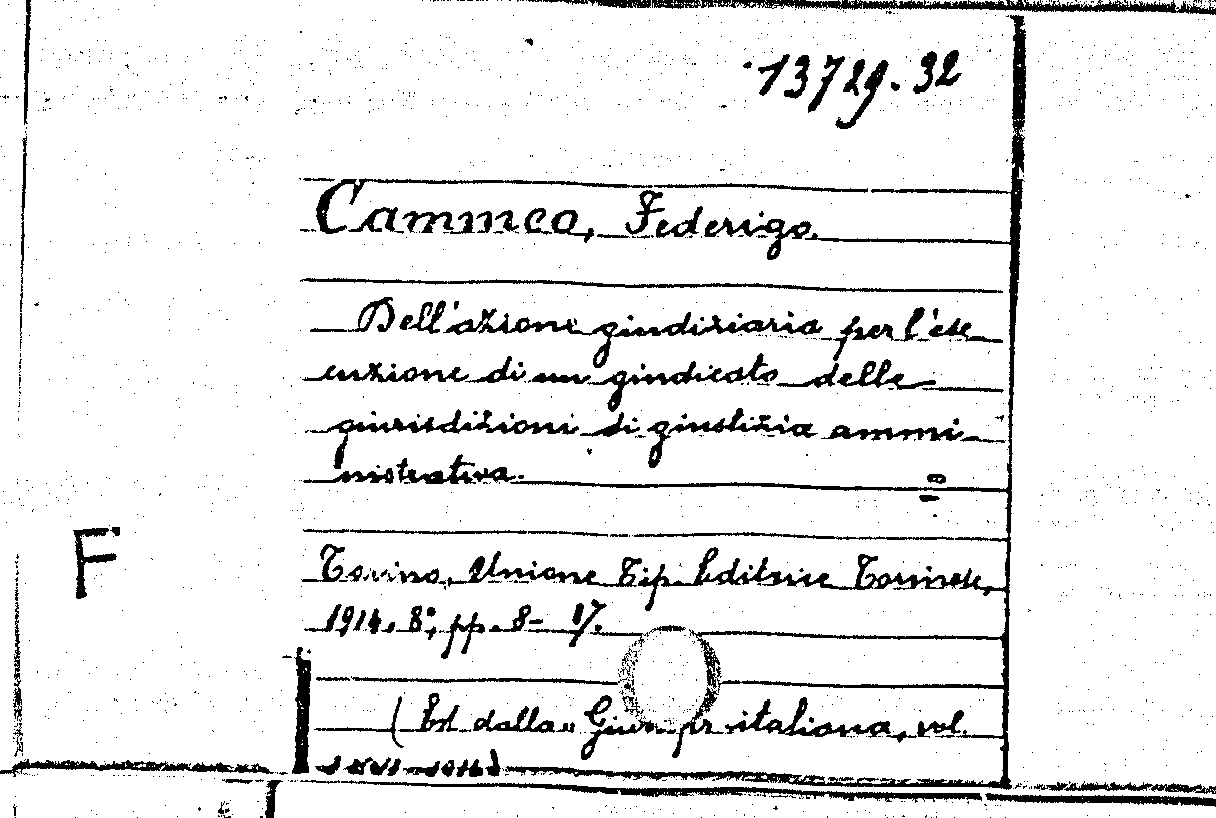 13729.32
Cammeo, Federigo.
Dell'azione giudiziaria per l'ese
cuzione di un giudicato delle
giurisdizioni di giustizia ammi-
nistrativa.
F
Torino, Unione Tip. Editrice Torinese,
1914. 8°, pp. 8- 17.
(Est. dalla "Giur italiana, vol.